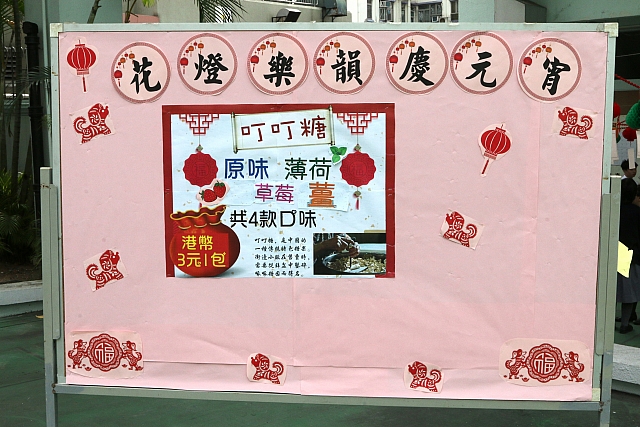 花燈樂韻慶元宵
叮叮糖
原味 薄荷
草莓 薑
共4款口味
港幣
3元1包
叮叮糖，是中國的
一種傳統特色糖果。
福
福